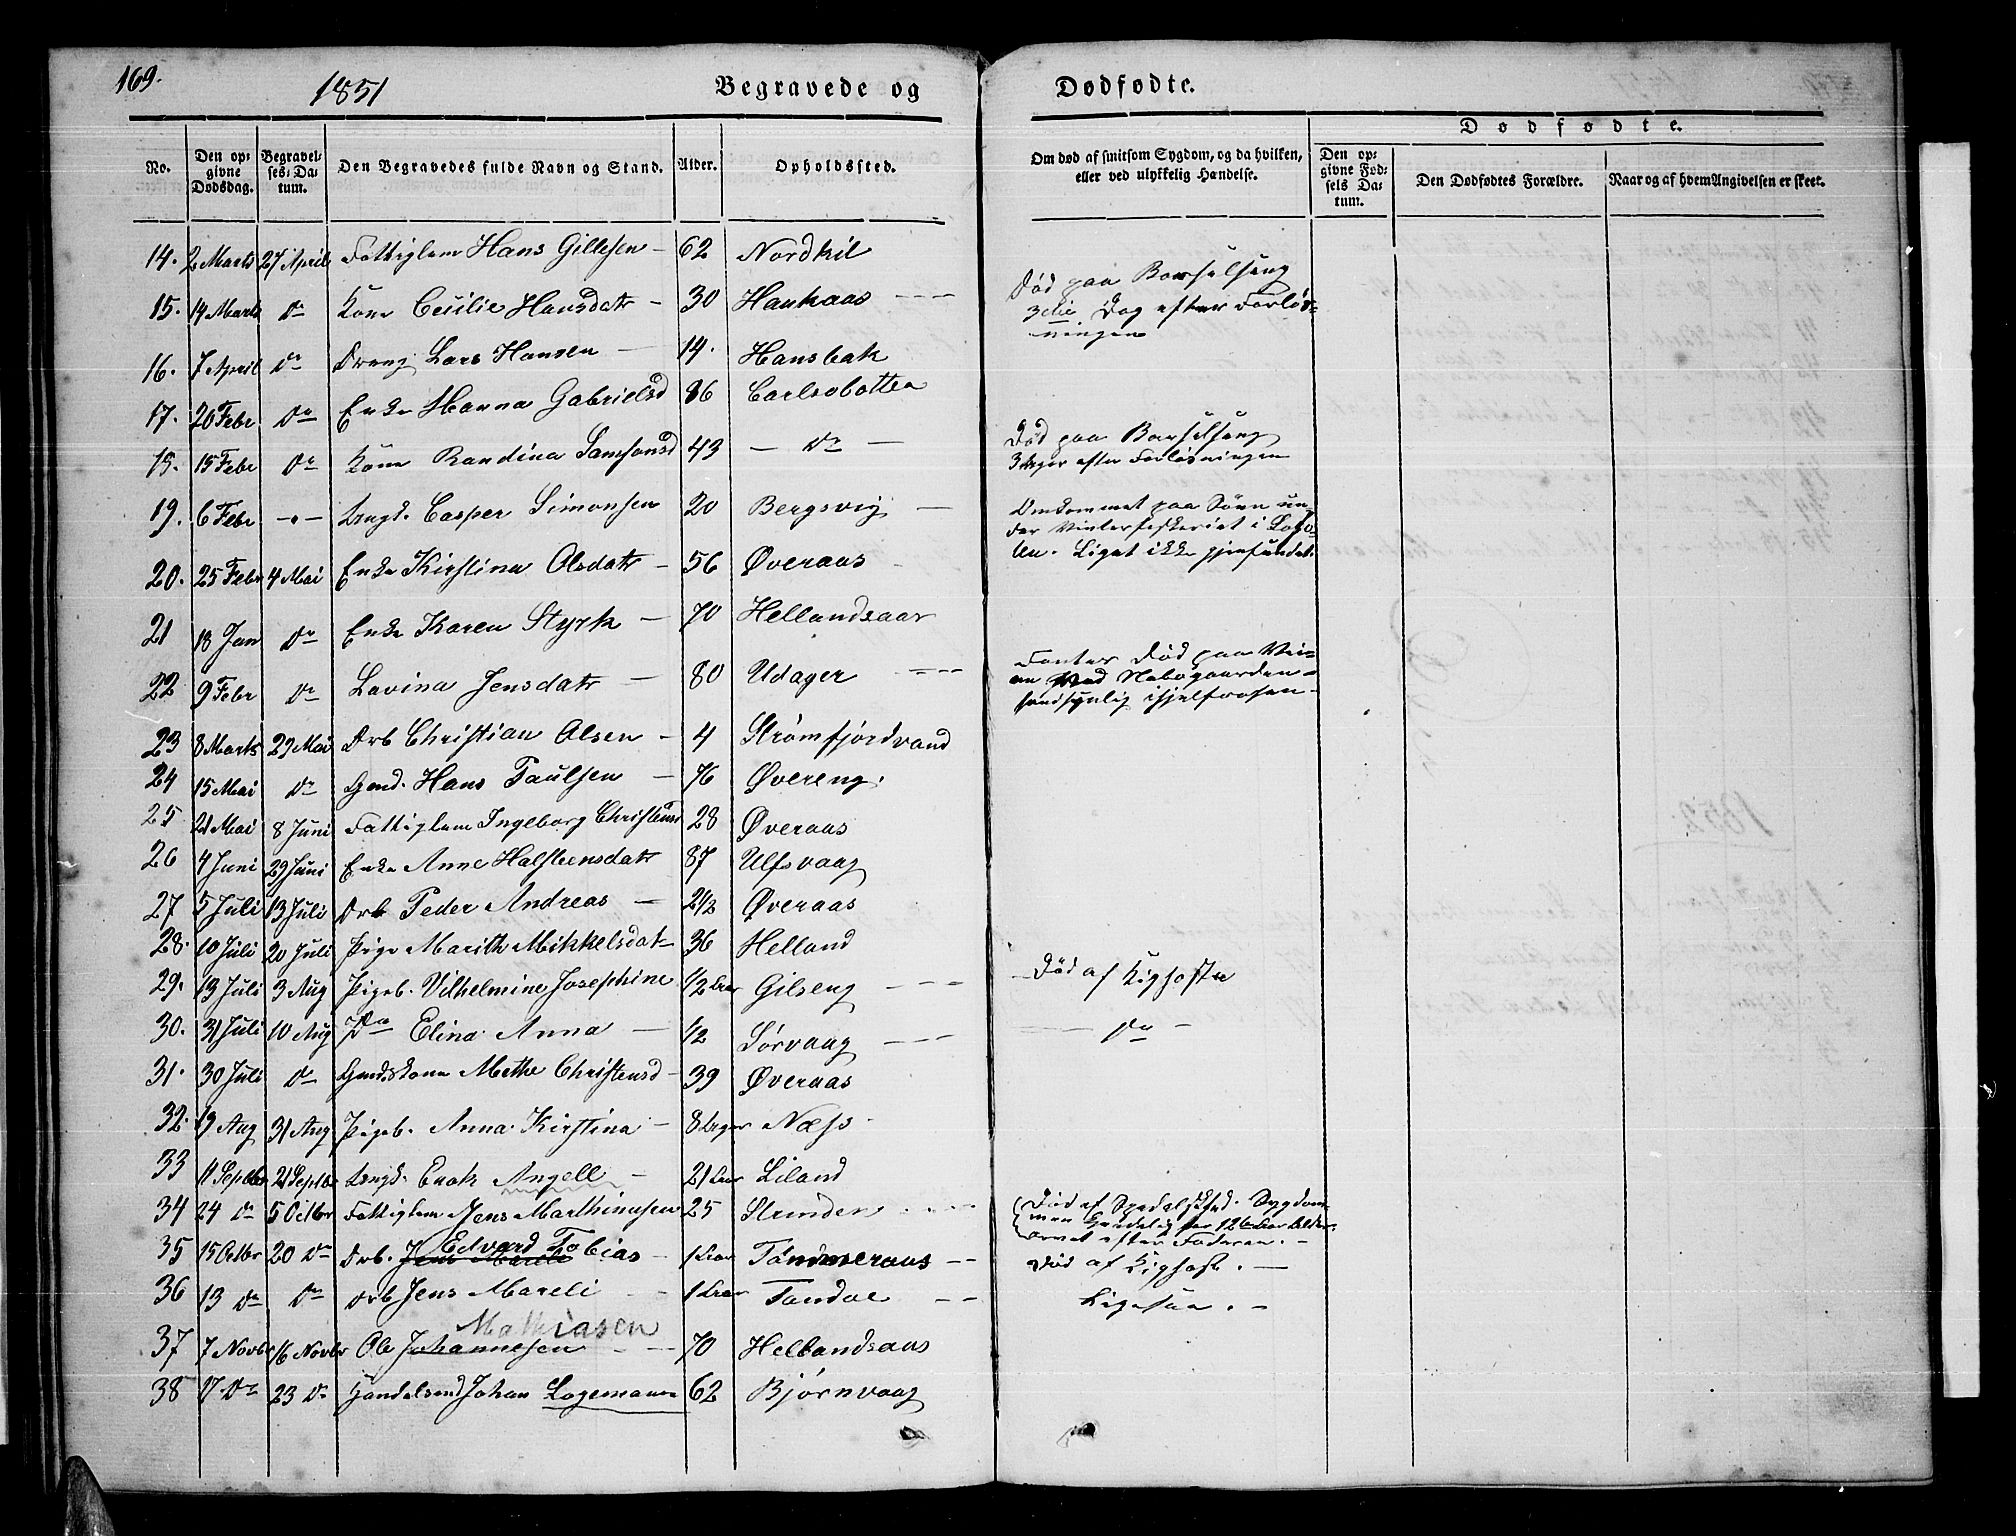 169.
1851
Begravede og
Dødfødte.
Dødfødte.
No.
Den op=
givne
Dødsdag.
Begravel=
ses=Da=
tum.
Den Begravedes fulde Navn og Stand.
Alder.
Opholdssted.
Om død af smitsom Sygdom, og da hvilken,
eller ved ulykkelig Hændelse.
Den op=
givne Fød=
sels Da=
tum.
Den Dødfødtes Forældre.
Naar og af hvem Angivelsen er skeet.
14. 2 Marts 27 April Fattiglem Hans Gillesen – 62 Nordkil
15. 14 Marts do Kone Cecilie Hansdatr – 30 Haukaas
Død paa Barselseng
3die Dag efter Forløs=
ningen
16. 7 April do Dreng Lars Hansen – 14. Hansbak
17. 20 Febr do Enke Hanna Gabrielsd 86 Carlsbotten
18. 15 Febr do Kone Randina Samsonsd 43 – do –
Død paa Barselseng
3 Uger efter Forløsningen
19. 6 Febr – " – Ungk. Casper Simonsen 20 Bergsvig –
Omkommet paa Søen un=
der Vinterfiskeriet i Lofo=
ten. Liget ikke gjenfundet.
20. 25 Febr 4 Mai Enke Kirstina Olsdatr – 56 Øveraas
21 18 Jan do Enke Karen Styrk – 70 Hellandsaas
22 9 Febr do Lavina Jensdatr – 80 Udager
Fantes død paa Vei=
en ved Nabogaarden –
sandsynlig ihjelfrosen –
23 8 Marts 29 Mai Drb Christian Olsen – 4 Strømfjordvand
24 15 Mai do Gmd. Hans Paulsen – 76 Øvereng.
25 21 Mai 8 Juni Fattiglem Ingeborg Christensd 28 Øveraas
26 4 Juni 29 Juni Enke Anne Halstensdatr 87 Ulfsvaag
27 5 Juli 13 Juli Drb Peder Andreas – 2 1/2 Øveraas
28. 10 Juli 20 Juli Pige Marith Mikkelsdat– 36 Helland
29. 13 Juli 3 Aug Pigeb. Vilhelmine Josephine 1/2 Aar Gilseng
– Død af Kighoste
30. 31 Juli 10 Aug Do Elina Anna – 1/2 Sørvaag
– do –
31. 30 Juli do Gmdskone Mette Christensd – 39 Øveraas
32. 19 Aug 31 Aug Pigeb. Anna Kirstina – 8 Uger Næss
33 11 Septbr 21 Septbr Ungk. Enok Angell – 21 Aar Liland
34 24 do 5 Octbr Fattiglem Jens Marthinusen 25 Strinden
Død af Spedalsked. Sygdom=
arvet efter Faderen. –
35 15 Octbr 20 do Drb. Jens Mareli Edvard Tobias – 1 Aar Tømmeraas –
Død af Kighoste. –
36 13 do do Drb Jens Mareli – 1 Aar Tandøe
Ligesaa. –
37 7 Novbr 16 Novbr Ole Johannesen Mathiasen – 70 Hellandsaas
38 17 do 23 do Handelsmd Johan Logemann 62 Bjørnvaag
1852.